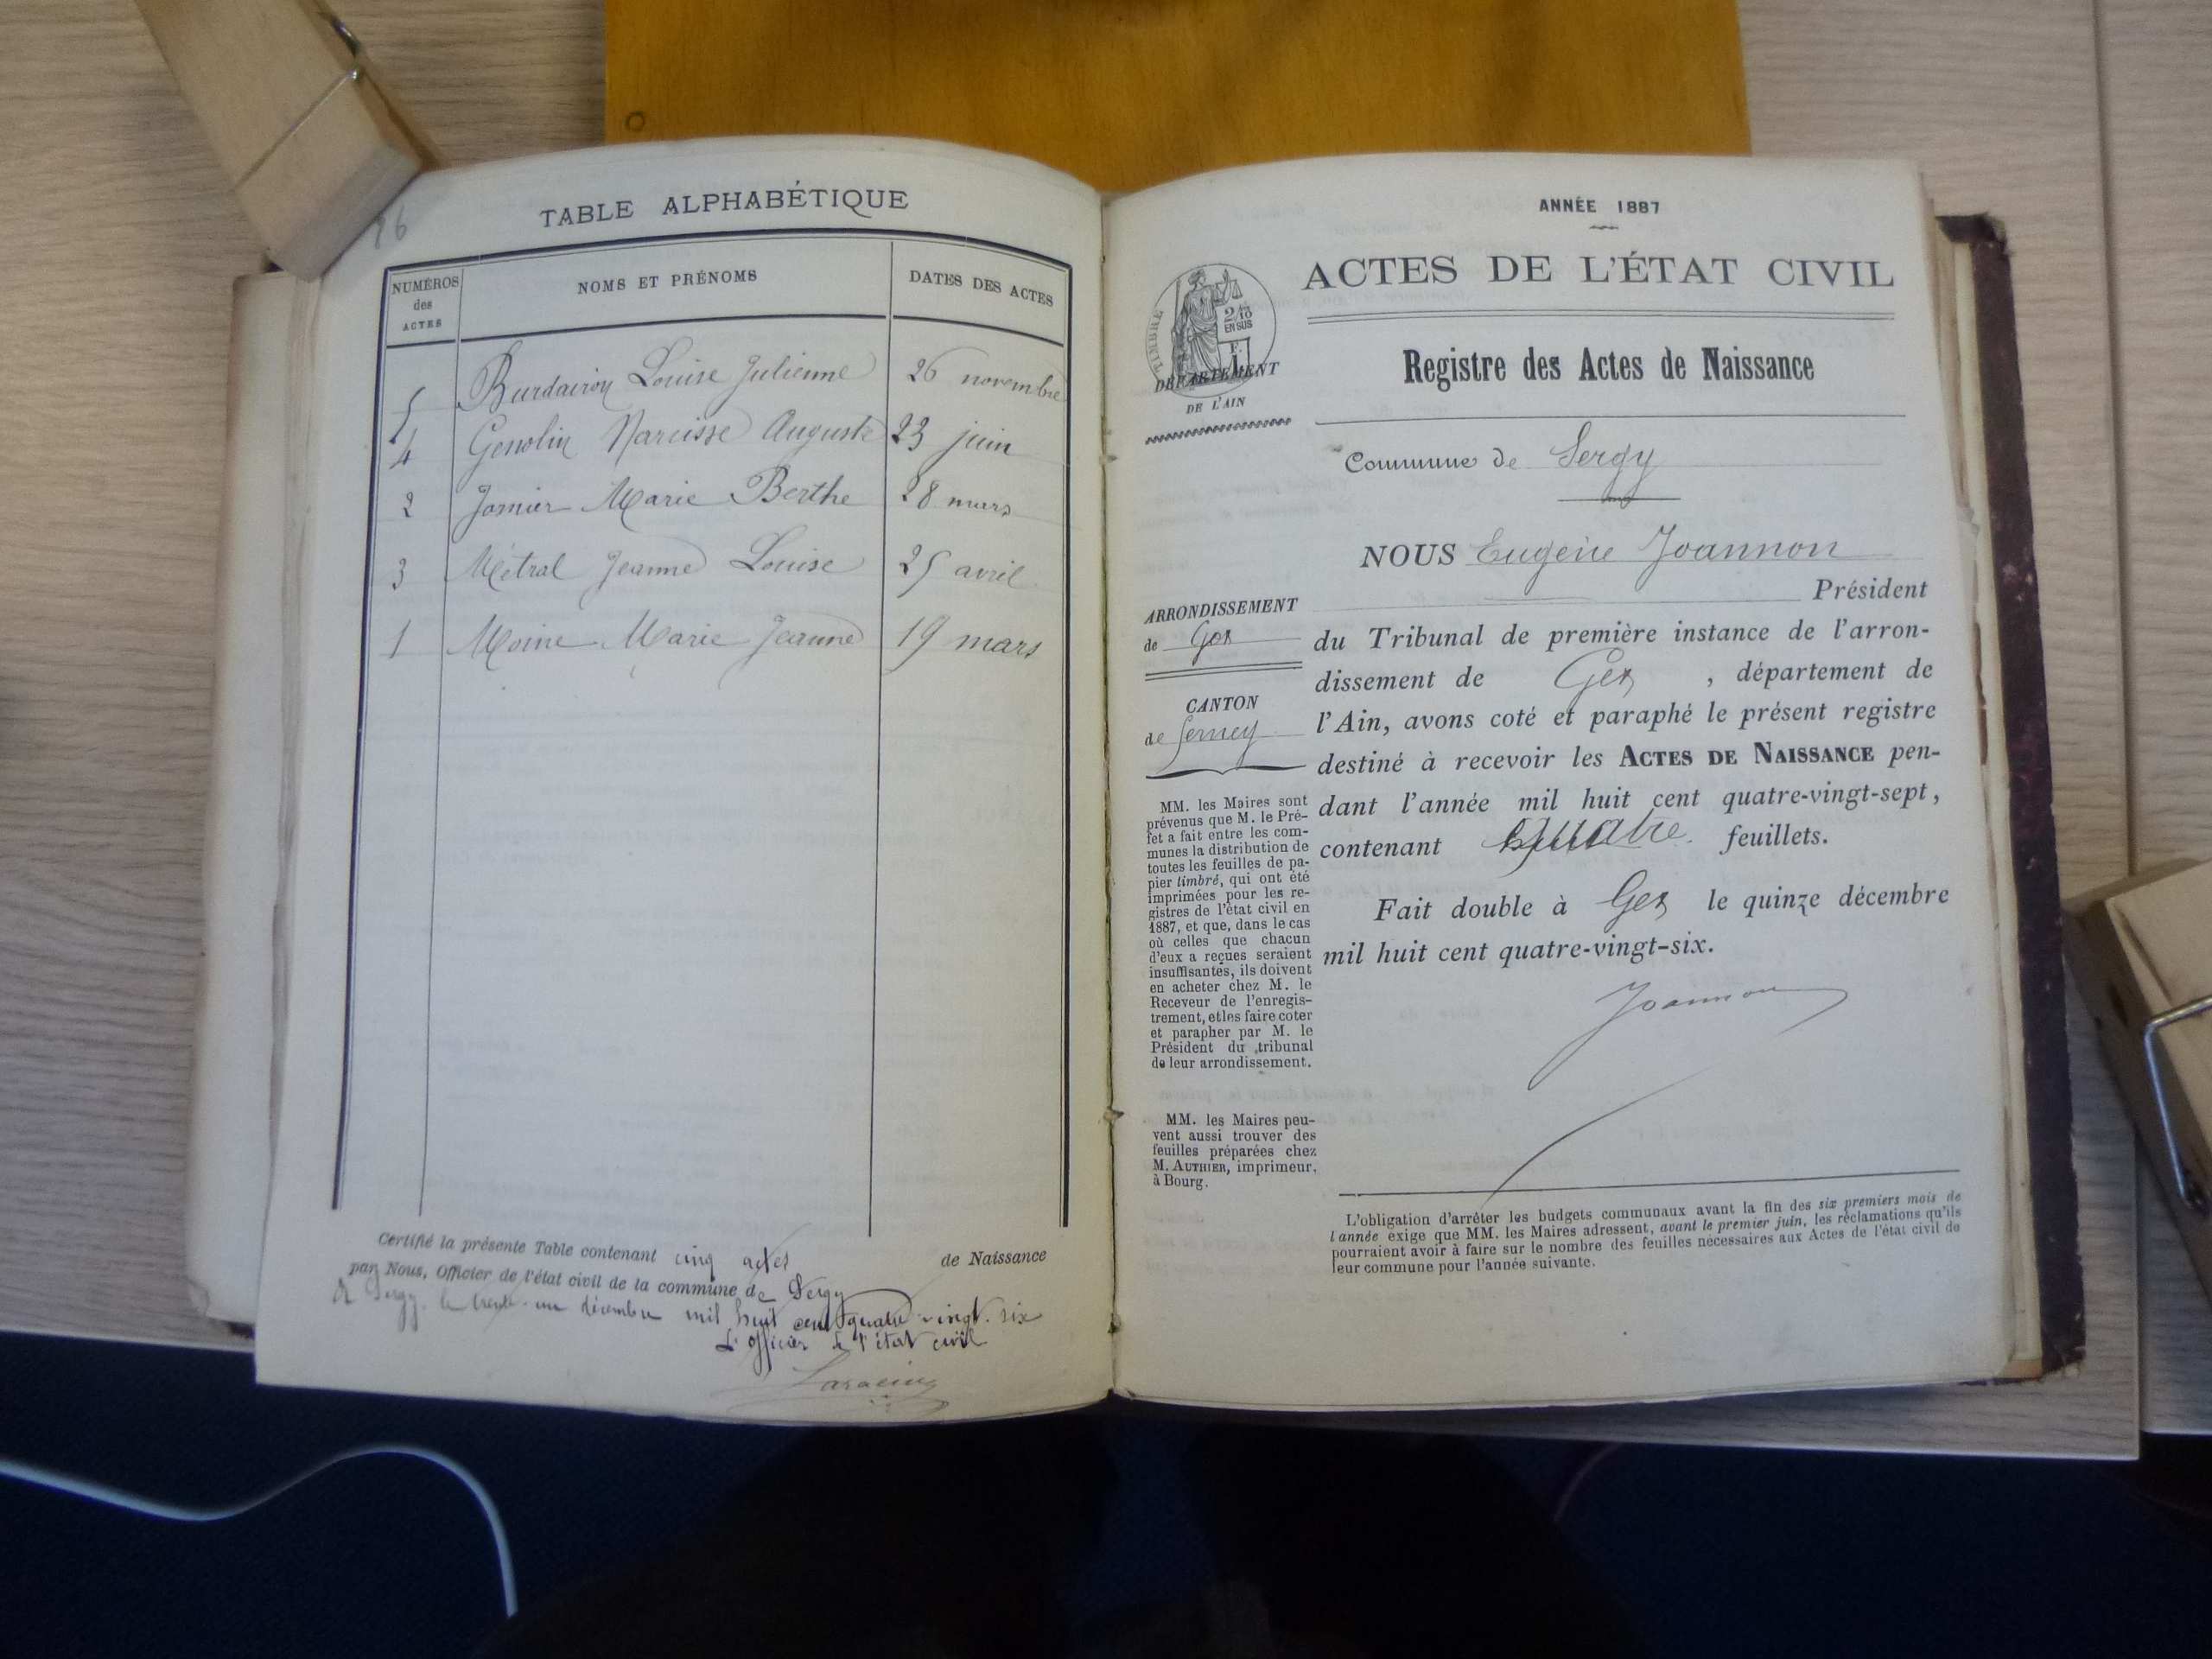 86
TABLE ALPHABÉTIQUE
NUMÉROS
des
ACTES
NOMS ET PRÉNOMS
DATES DES ACTES
5 Burdairon Louise Julienne 26 novembre
4 Genolin Narcisse Auguste 23 juin
2 Jomier Marie Berthe 28 mars
3 Métral Jeanne Louise 25 avril
1 Moine Marie Jeanne 19 mars
Certifié la présente Table contenant cinq actes de Naissance
par Nous, Officier de l'état civil de la commune de Sergy
A Sergy, le trente-un décembre mil huit cent quatre-vingt-six
L'officier de l'état civil
ANNÉE 1887
ACTES DE L'ÉTAT CIVIL
TIMBRE
2/10
EN SUS
DÉPARTEMENT
DE L'AIN
Registre des Actes de Naissance
Commune de Sergy
NOUS Eugène Joannon
Président
du Tribunal de première instance de l'arron-
dissement de Gex, département de
l'Ain, avons coté et paraphé le présent registre
destiné à recevoir les ACTES DE NAISSANCE pen-
dant l'année mil huit cent quatre-vingt-sept,
contenant quatre feuillets.
Fait double à Gex le quinze décembre
mil huit cent quatre-vingt-six.
Joannon
ARRONDISSEMENT
de Gex
CANTON
de Ferney
MM. les Maires sont
prévenus que M. le Pré-
fet a fait entre les com-
munes la distribution de
toutes les feuilles de pa-
pier timbré, qui ont été
imprimées pour les re-
gistres de l'état civil en
1887, et que, dans le cas
où celles que chacun
d'eux a reçues seraient
insuffisantes, ils doivent
en acheter chez M. le
Receveur de l'enregis-
trement, et les faire coter
et parapher par M. le
Président du tribunal
de leur arrondissement.
MM. les Maires peu-
vent aussi trouver des
feuilles préparées chez
M. AUTHIER, imprimeur,
à Bourg.
L'obligation d'arrêter les budgets communaux avant la fin des six premiers mois de
l'année exige que MM. les Maires adressent, avant le premier juin, les réclamations qu'ils
pourraient avoir à faire sur le nombre des feuilles nécessaires aux Actes de l'état civil de
leur commune pour l'année suivante.